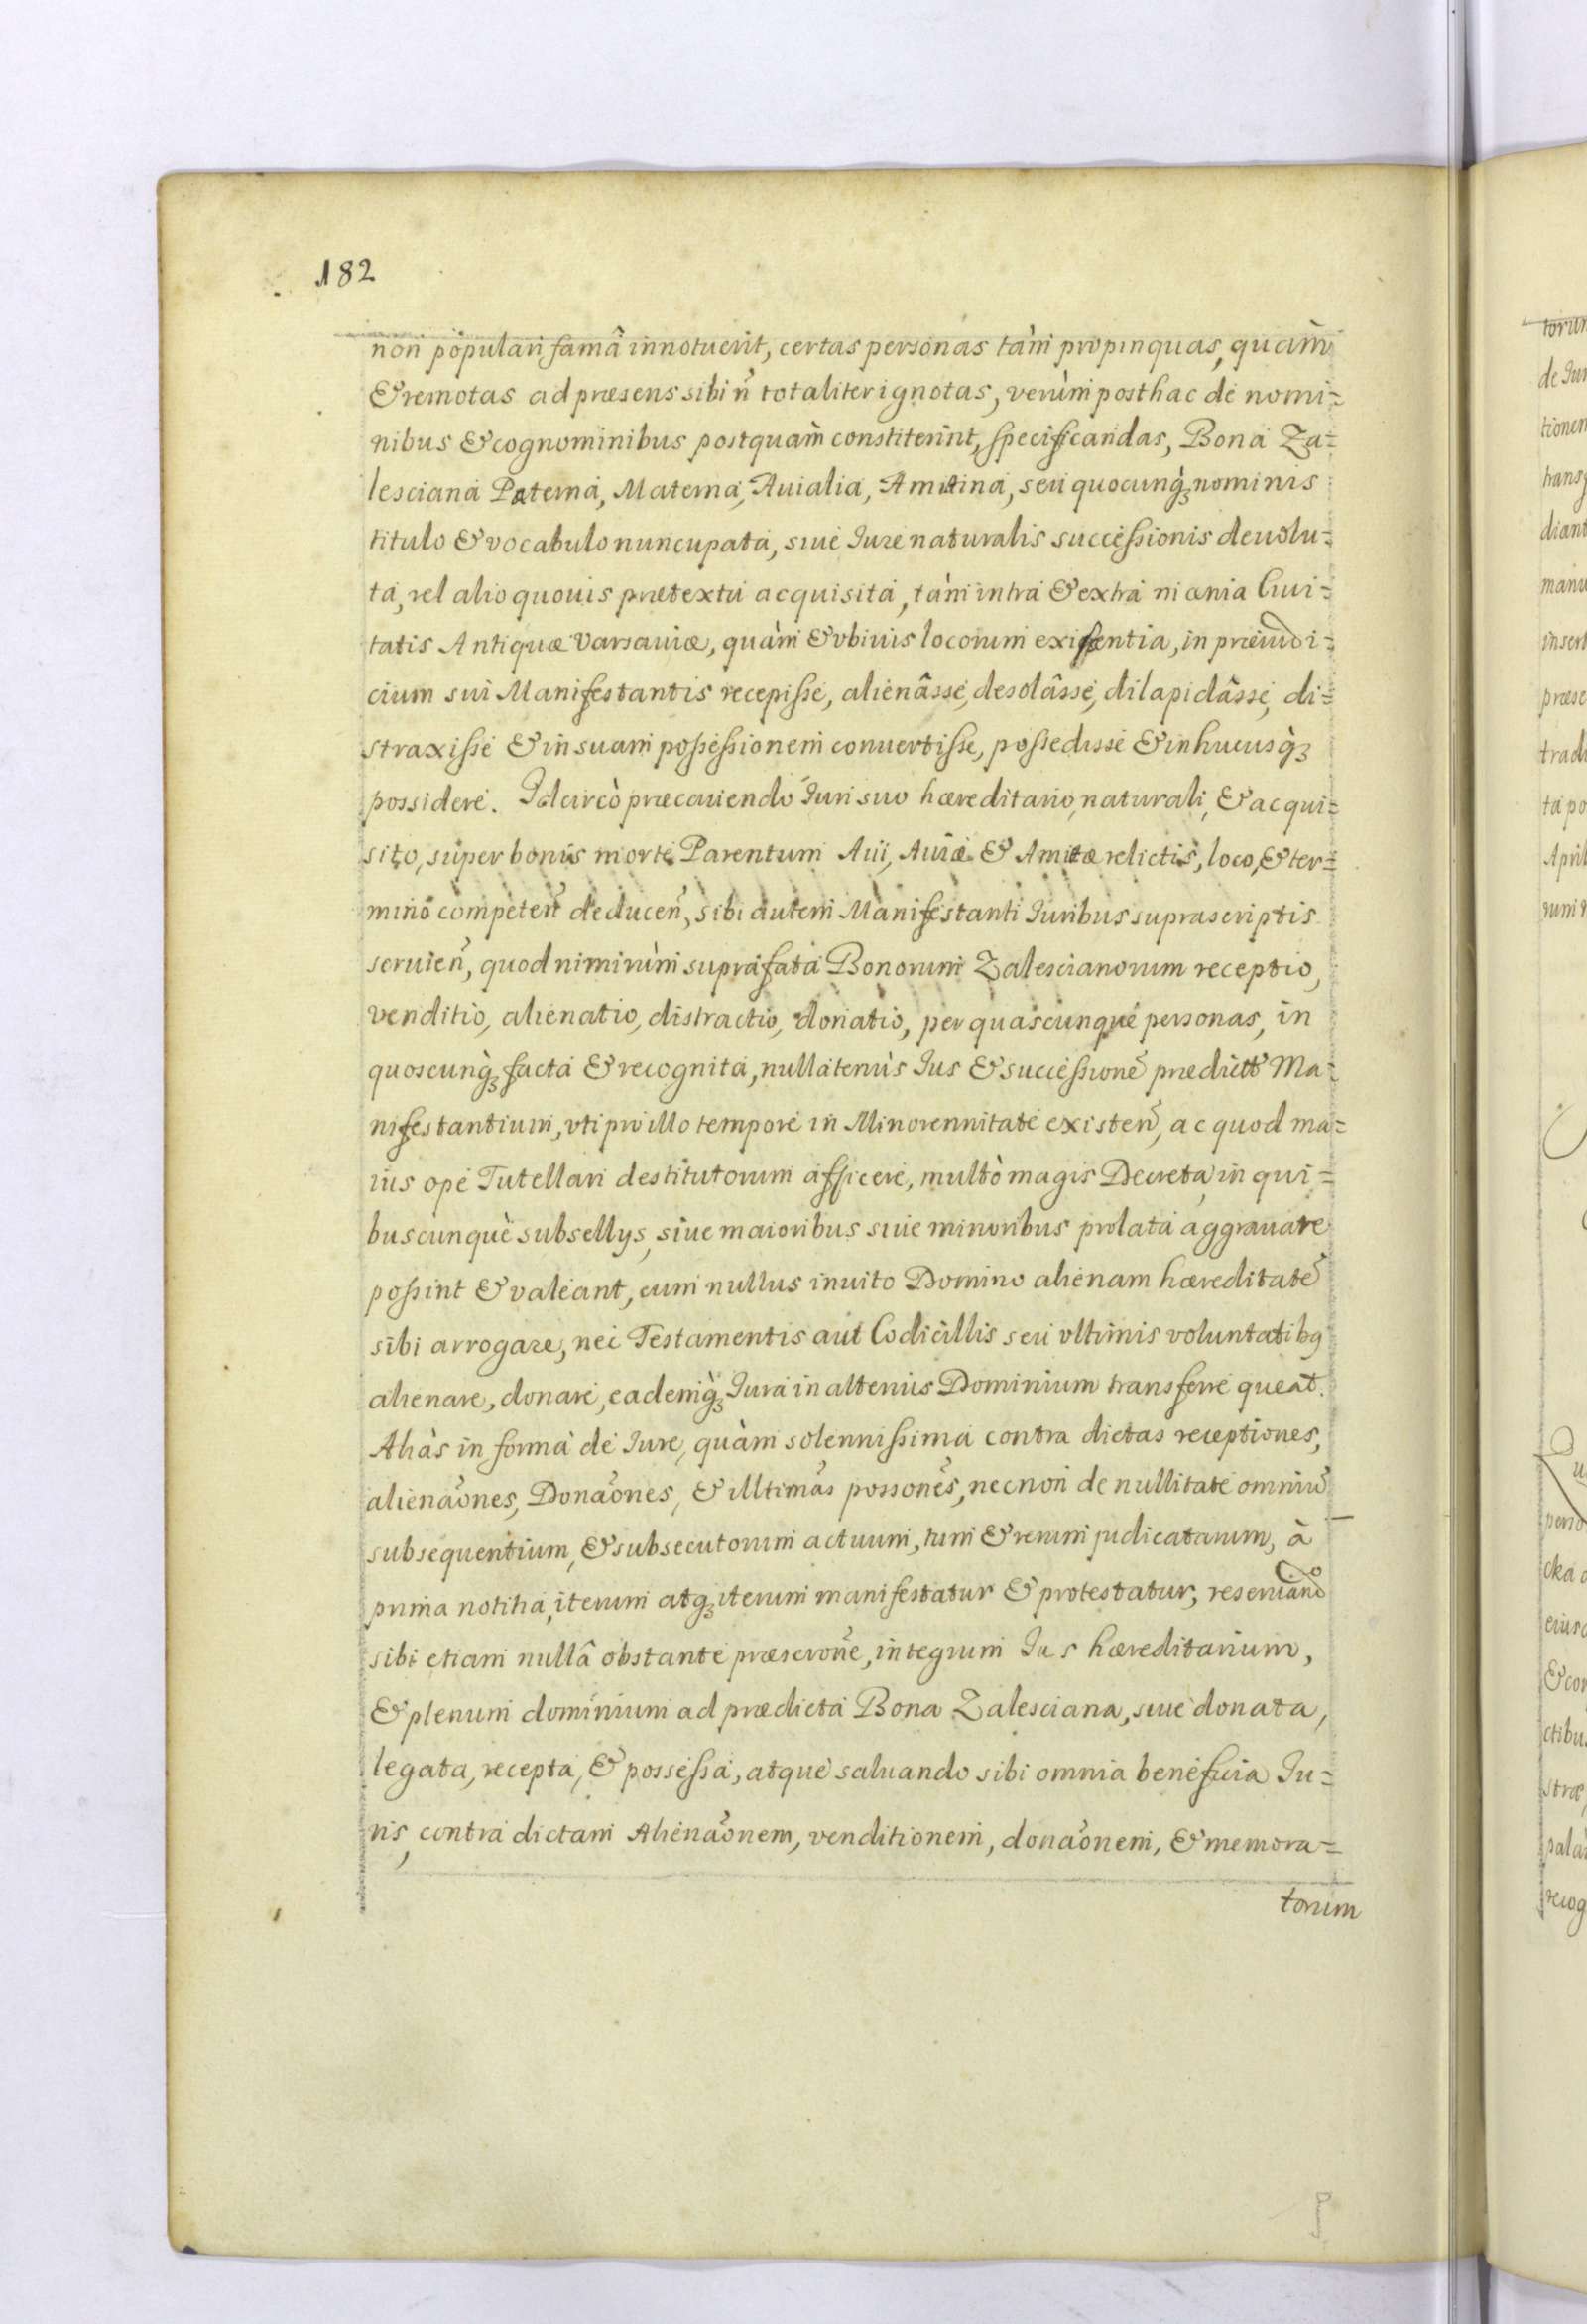 182
non populari famâ innotuerit, certas personas tàm propinquas, quàm
& remotas ad præsens sibi ñ totaliter ignotas, verùm posthac de nomi=
nibus & cognominibus postquàm constiterint, specificandas, Bona Za=
lesciana Paterna, Materna, Auialia, Amitina, seu quocunq̀ꝫ nominis
titulo & vocabulo nuncupata, siue Iure naturalis successionis deuolu=
ta, vel alio quouis prætextu acquisita, tàm intra & extra mænia Ciui=
tatis Antiquæ Varsauiæ, quàm & vbiuis locorum existentia, in præiudi=
cium sui Manifestantis recepisse, alienâsse, desolâsse, dilapidâsse, di=
straxisse & in suam possessionem conuertisse, possedisse & inhucusq̀ꝫ
possidere. Idcircò præcauendo Iuri suo hæreditario, naturali, & acqui=
sito, super bonis morte Parentum Aui, Auiæ & Amitæ relictis, loco, & ter=
mino competeñ deduceñ, sibi autem Manifestanti Iuribus suprascriptis
seruieñ, quod nimirùm suprafata Bonorum Zalescianorum receptio,
venditio, alienatio, distractio, donatio, per quascunque personas, in
quoscunq̀ꝫ facta & recognita, nullatenùs Ius & successionẽ prædictt Ma=
nifestantium, vti pro illo tempore in Minorennitate existeñ, ac quod ma=
ius ope Tutellari destitutorum afficere, multò magis Decreta in qui=
buscunque subsellys, siue maioribus siue minoribus prolata aggrauare
possint & valeant, cum nullus inuito Domino alienam hæreditatẽ
sibi arrogare, nec Testamentis aut Codicillis seu vltimis voluntatibꝯ
alienare, donare, eademq̀ꝫ Iura in alterius Dominium transferre queat.
Aliàs in forma de Iure, quàm solennissima contra dictas receptiones,
alienaõnes, Donaõnes, & illtimãs possonẽs, necnon de nullitate omniũ
subsequentium, & subsecutorum actuum, tum & rerum judicatarum, à
prima notitia, iterum atqꝫ iterum manifestatur & protestatur, reseruando
sibi etiam nullâ obstante præscronẽ, integrum Ius hæreditarium,
& plenum dominium ad prædicta Bona Zalesciana, siue donata,
legata, recepta, & possessa, atque saluando sibi omnia beneficia Iu=
ris, contra dictam Alienaõnem, venditionem, donaõnem, & memora=
torum